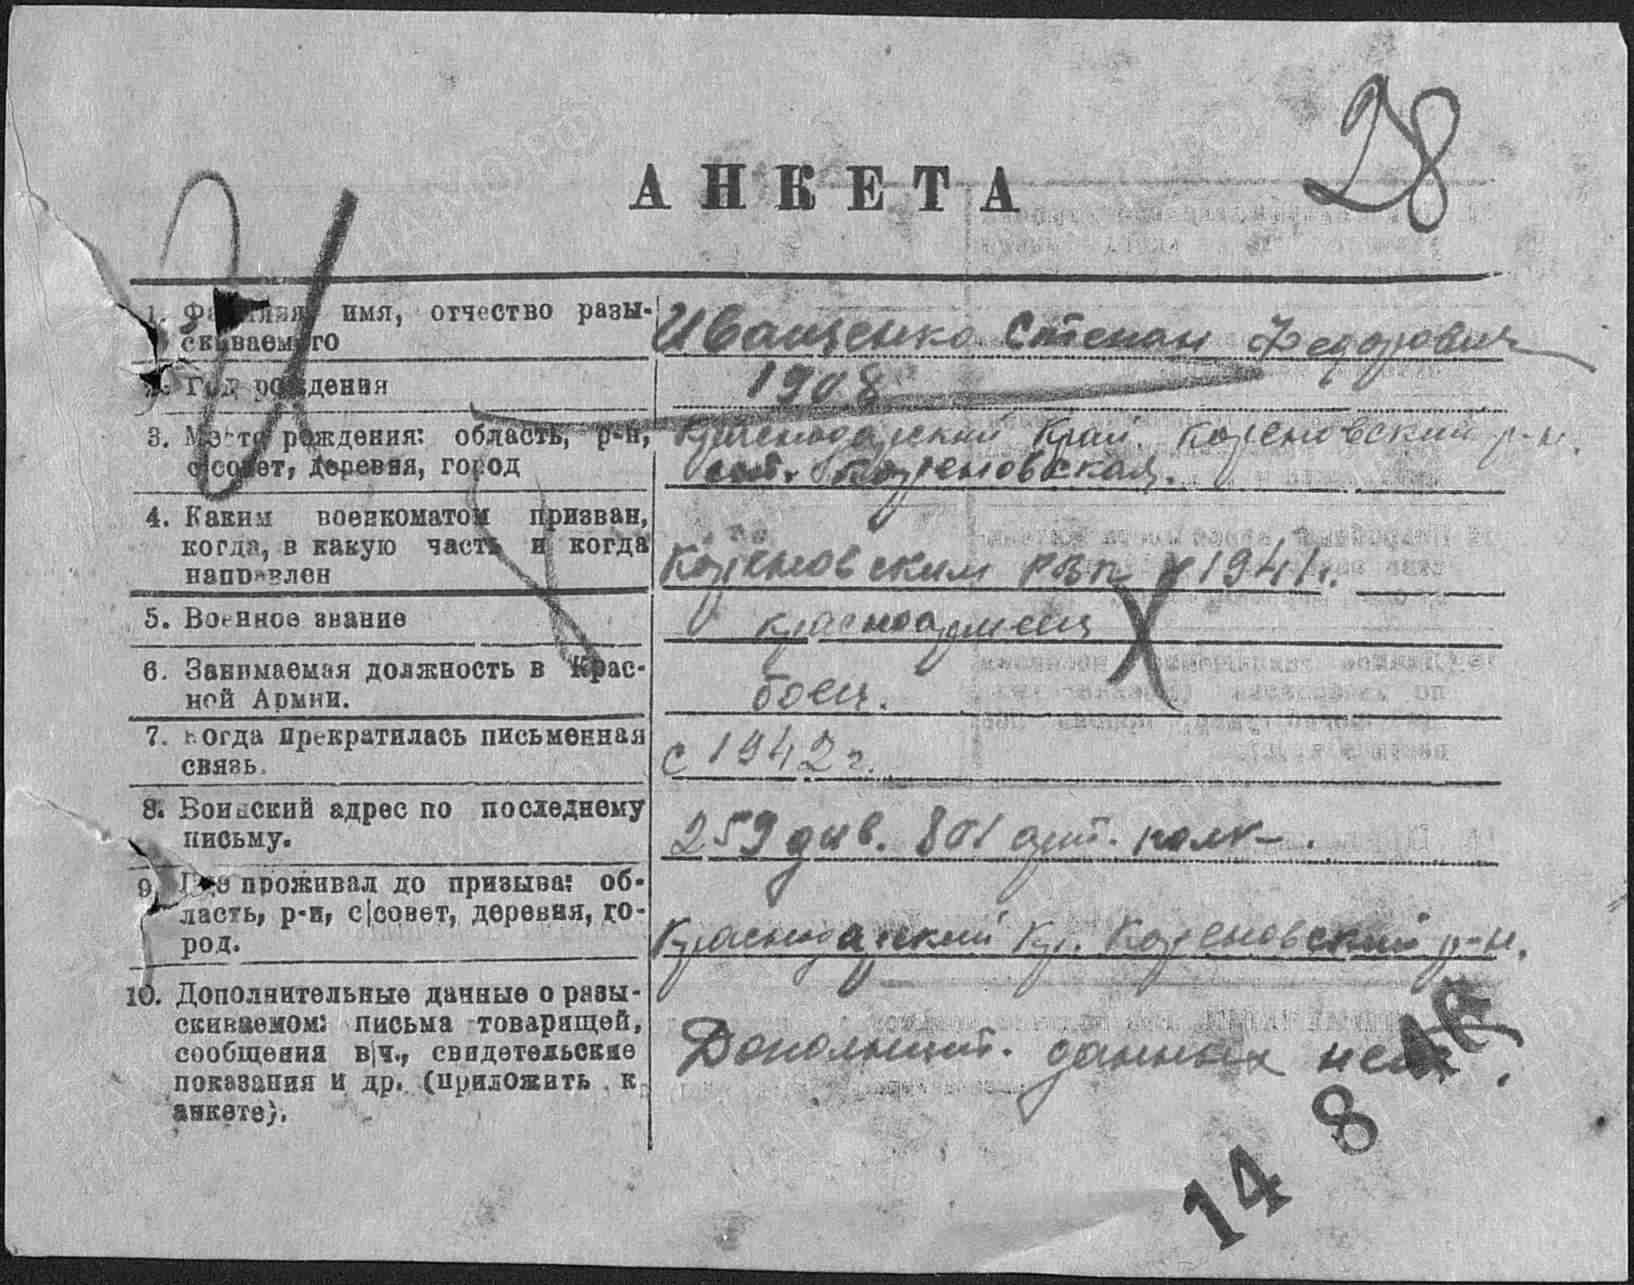 28
АНКЕТА
И
1. Фамилия, имя, отчество разы-
скиваемого
Иващенко Степан Федорович
2. Год рождения
1908
3. Место рождения: область, р-н,
с|совет, деревня, город
Краснодарский Край. Кореновский р-н.
ст. Кореновская.
4. Каким военкоматом призван,
когда, в какую часть и когда
направлен
Кореновским РВК 1941 г.
5. Военное звание
красноармеец
6. Занимаемая должность в Крас-
ной Армии.
боец.
7. Когда прекратилась письменная
связь.
с 1942 г.
8. Воинский адрес по последнему
письму.
259 див. 801 арт. полк.
9. Где проживал до призыва: об-
ласть, р-н, с|совет, деревня, го-
род.
Краснодарский Кр. Кореновский р-н.
10. Дополнительные данные о разы-
скиваемом: письма товарищей,
сообщения в|ч., свидетельские
показания и др. (приложить к
анкете).
Дополнит. данных нет.
14 8